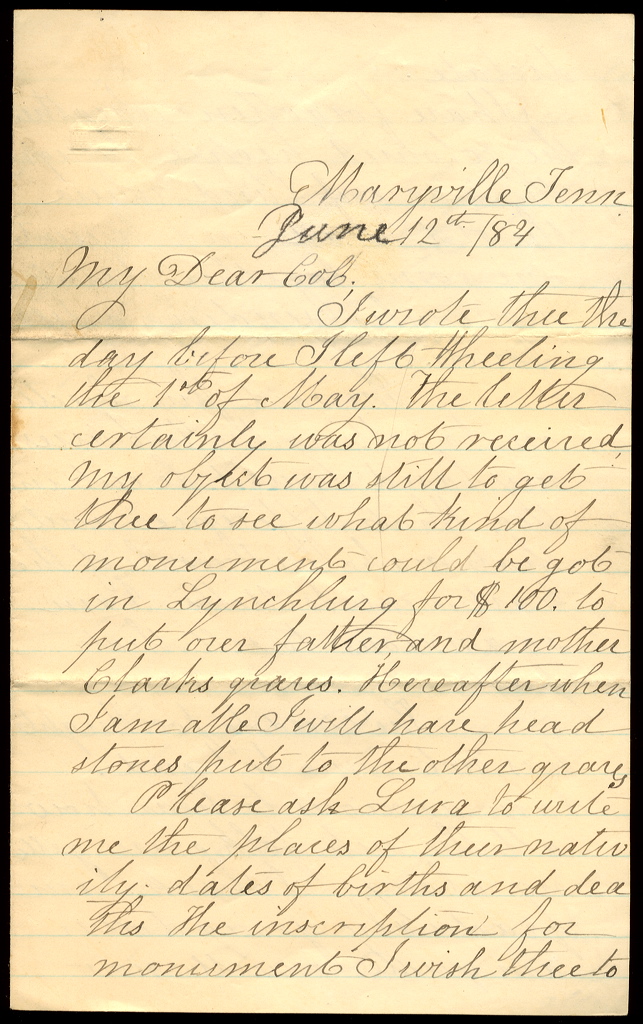 Maryville Tenn
June 12th /84
My Dear Cob,
I wrote thee the
day before I left Wheeling
the 1st of May. The letter
certainly was not received,
my object was still to get
thee to see what kind of
monument could be got
in Lynchburg for $100. to
put over father, and mother
Clarks graves. Hereafter when
I am able I will have head
stones put to the other graves
Please ask Lura to write
me the places of their nativ
ity. dates of births and dea
ths the inscription for
monument I wish thee to